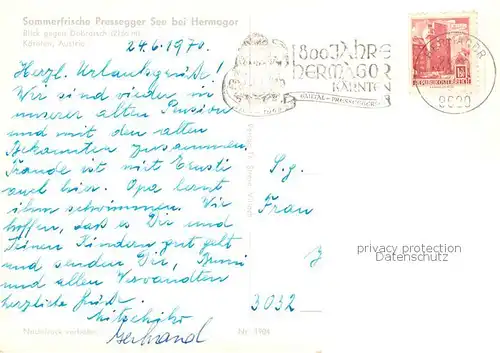 Sommerfrische Pressegger See bei Hermagor
Blick gegen Dobratsch (2166 m)
Kärnten, Austria
24.6.1970.
Herzl. Urlaubsgrüße!
Wir sind wieder in
unserer alten Pension
und mit den alten
Bekannten zusammen.
Traude ist mit Ernsti
auch hier. Opa lernt
ihm schwimmen. Wir
hoffen, daß es Dir und
Deinen Kindern gut geht
und senden Dir,
und allen Verwandten
herzliche Grüße.
Gertraud
Nachdruck verboten
Nr. 1904
800 JAHRE
HERMAGOR
KÄRNTEN
REPUBLIK ÖSTERREICH
HERMAGOR
9620
S.g.
Frau
3032
privacy protection
Datenschutz